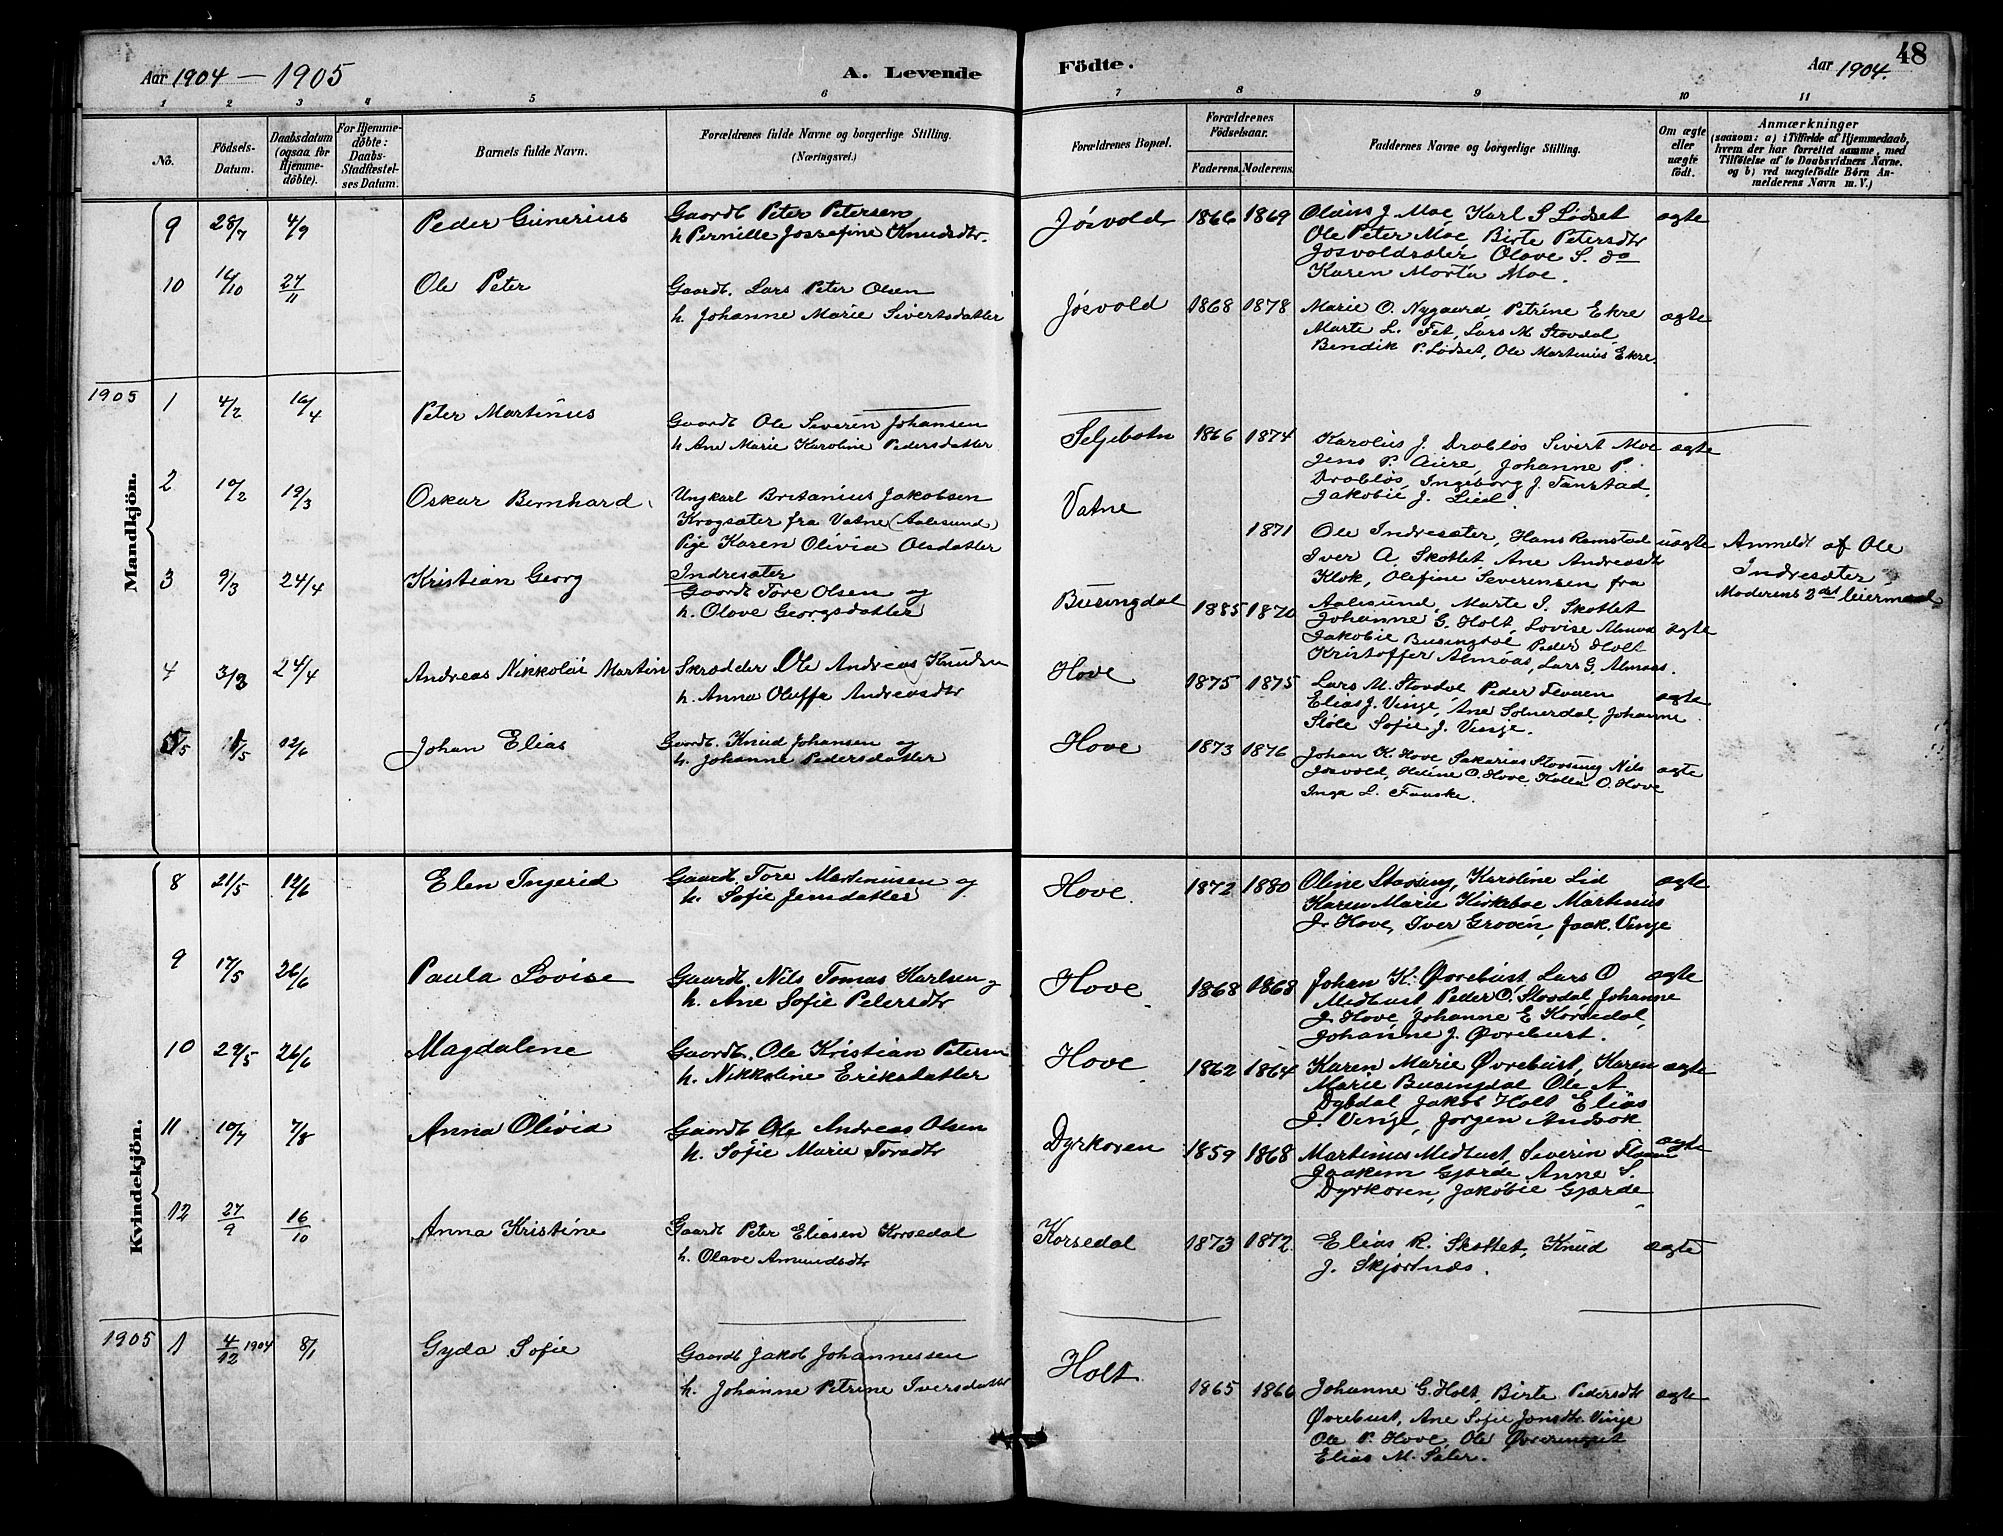 Aar 1904 – 1905
A. Levende
Födte.
Aar 1904.
48
1 2 3 4 5 6 7 8 9 10 11
No.
Födsels-Datum.
Daabsdatum (ogsaa for Hjemme-döbte).
For Hjemme-döbte: Daabs-Stadfæstel-ses Datum.
Barnets fulde Navn.
Forældrenes fulde Navne og borgerlige Stilling. (Næringsvei.)
Forældrenes Bopæl.
Forældrenes Födselsaar.
Faderens. Moderens.
Faddernes Navne og borgerlige Stilling.
Om ægte eller uægte födt.
Anmærkninger
(saasom: a) i Tilfælde af Hjemmedaab, hvem der har forrettet samme, med Tilföielse af to Daabsvidners Navne. og b) ved uægtefödte Börn An-melderens Navn m.V.)
Mandkjön.
9 28/7 4/9 Peder Gunerius Gaardb Peter Petersen Jøsvold 1866 1869 Olaus J. Moe, Karl S Lødset ægte
h Pernille Jossefine Knudsdtr. Ole Peter Moe Birte Petersdtr
Jøsvoldsæter Olave S. do
Karen Marta Moe.
10 16/10 27/11 Ole Peter Gaardb. Lars Peter Olsen Jøsvold 1868 1878 Marie O. Nygaard, Petrine Ekre ægte
h. Johanne Marie Sivertsdatter Marte L. Fet, Lars M Stovdal,
Bendik P. Lødset, Ole Martinus Ekre.
1905 1 4/2 16/4 Peter Martinus Gaardb Ole Severin Johansen Seljebotn 1866 1874 Karolius J. Drabløs Sivert Moe ægte
h Ane Marie Karoline Pedersdatter Jens P. Aure, Johanne P.
Drabløs, Ingeborg J. Tanstad,
Jakobie J. Lied.
2 10/2 19/3 Oskar Bernhard Ungkarl Britanius Jakobsen Vatne 1871 Ole Indresæter, Hans Ramstad uægte Anmeldt af Ole
Krogsæter fra Vatne (Aalesund) Iver A. Skotlet Ane Andreasdt Indresæter
Pige Karen Olivia Olsdatter Klok, Olefine Severinsen fra Moderens 2det leiermaal
Indresæter Aalesund, Marte I. Skotlet
3 9/3 24/4 Kristian Georg Gaardb Tore Olsen og Busingdal 1885 1870 Johanne G. Holt, Lovise Almaas ægte
h. Olave Georgsdatter Jakobie Busingdal Peder Holt
Kristoffer Almaas, Lars G. Almaas.
4 3/3 24/4 Andreas Nikkolai Martin Skrædder Ole Andreas Knudsen Hove 1875 1875 Lars M. Stovdal Peder Flaaen ægte
h. Anna Oluffa Andreasdtr Elias J. Vinje, Ane Solnerdal, Johanne
Støle Sofie J. Vinje.
5 1/5 12/6 Johan Elias Gaardb. Knud Johansen og Hove 1873 1876 Johan K. Hove Sakarias Stavseng Nils ægte
h. Johanne Pedersdatter Jøsvold, Heline O. Hove O. Hove
Inga L. Fauske.
Kvindekjön.
8 21/5 12/6 Elen Ingerid Gaardb. Tore Martinusen og Hove. 1872 1880 Oline Stavseng, Karoline Lid ægte
h. Sofie Jensdatter Karen Marie Kirkeboe Martinus
J. Hove, Iver Grovén, Jaak. Vinje
9 17/5 26/6 Paula Lovise Gaardb. Nils Tomas Karlsen og Hove. 1868 1868 Johan K. Øvrebust, Lars O ægte
h. Ane Sofie Petersdtr Midbust Peder O. Stovdal, Johanne
J. Hove, Johanne E Korsedal,
Johanne J. Øvrebust.
10 29/5 26/6 Magdalene Gaardb. Ole Kristian Petersen Hove 1862 1864 Karen Marie Øvrebust, Karen ægte
h. Nikkoline Eriksdatter Marie Busingdal Ole A.
Dybdal, Jakob Holt Elias
J. Vinje, Jørgen Andsok
11 10/7 7/8 Anna Olivia Gaardb Ole Andreas Olsen Dyrkoren 1859 1868 Martinus Midbust, Severin Flaaen ægte
h. Sofie Marie Torsdtr Joakim Gjærde, Anne S.
Dyrkoren, Jakobie Gjærde
12 27/9 16/10 Anna Kristine Gaardb Peter Eliasen Korsedal Korsedal 1873 1872. Elias R. Skottet, Knud ægte
h. Olave Amundsdtr J. Skjortnæs.
1905 1 4/12 1904 8/1 Gyda Sofie Gaardb Jakob Johannessen Holt 1865 1866 Johanne G. Holt, Birte Pedersdtr ægte
h. Johanne Petrine Iversdatter Øvrebust, Ane Sofie Jonsdtr. Vinje
Ole P. Hove, Ole
Elias M. Sæter.